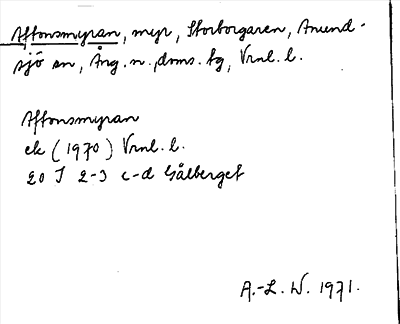 Affonsmyran, myr, Storborgaren, Anund-
sjö sn, Ång. n. doms. tg, Vrnl. l.
Affonsmyran
ek (1970) Vrnl. l.
20 I 2-3 c-d Gålberget
A.-L. W. 1971.